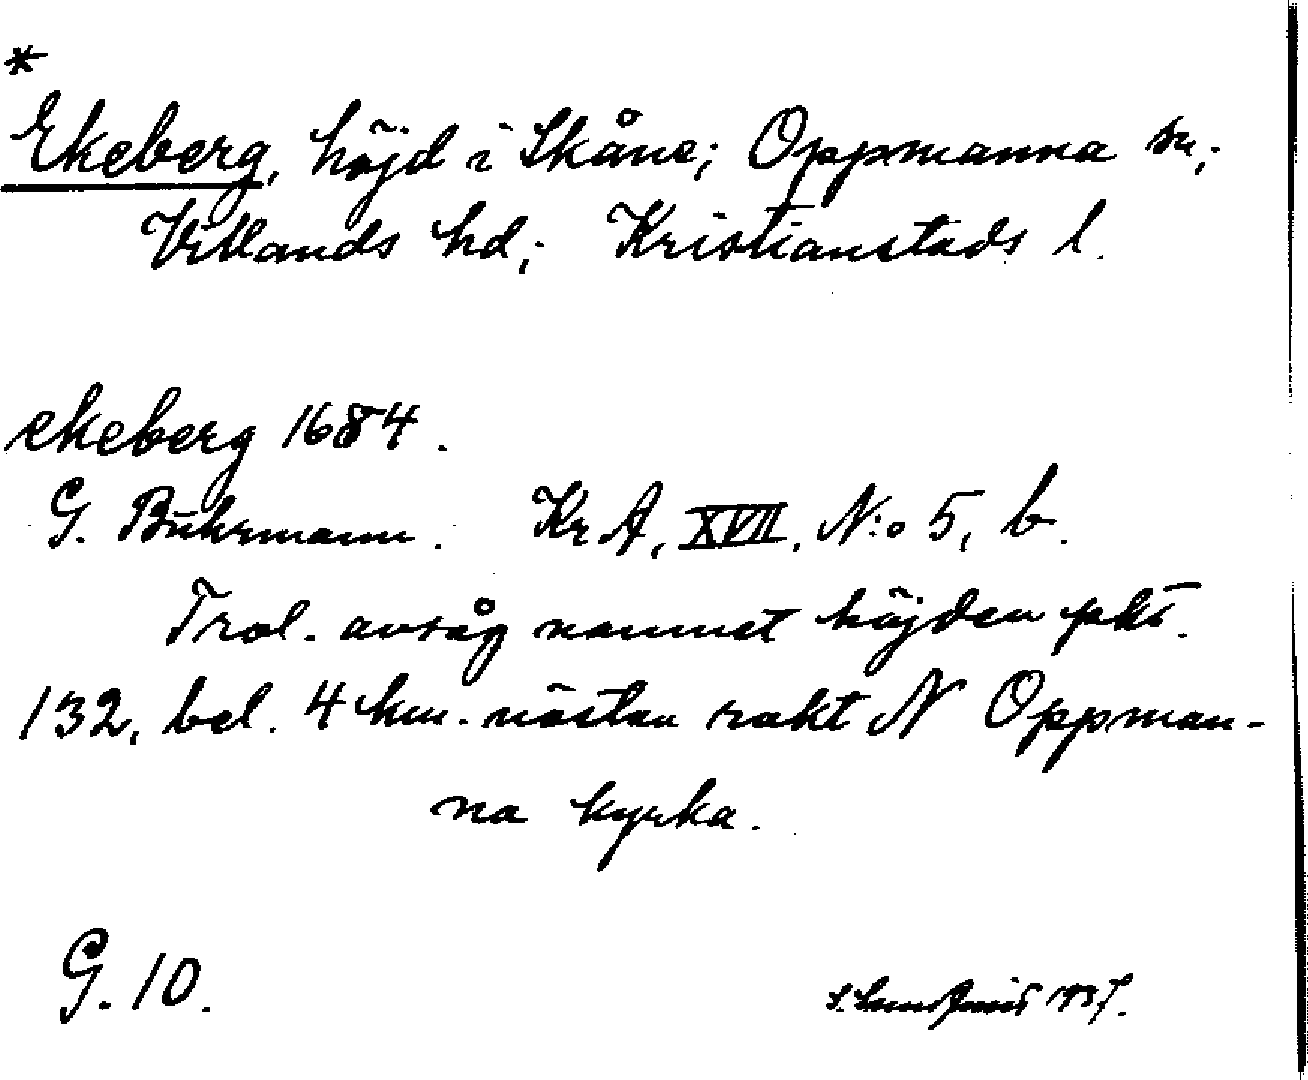 *
Ekeberg, höjd i Skåne; Oppmanna sn;
Villands hd; Kristianstads l.
ekeberg 1684.
G. Buhrmann. KrA, XVII, N:o 5, b.
Trol. avsåg namnet höjden pkt.
132, bel. 4 km. nästan rakt N Oppman-
na kyrka.
G. 10.